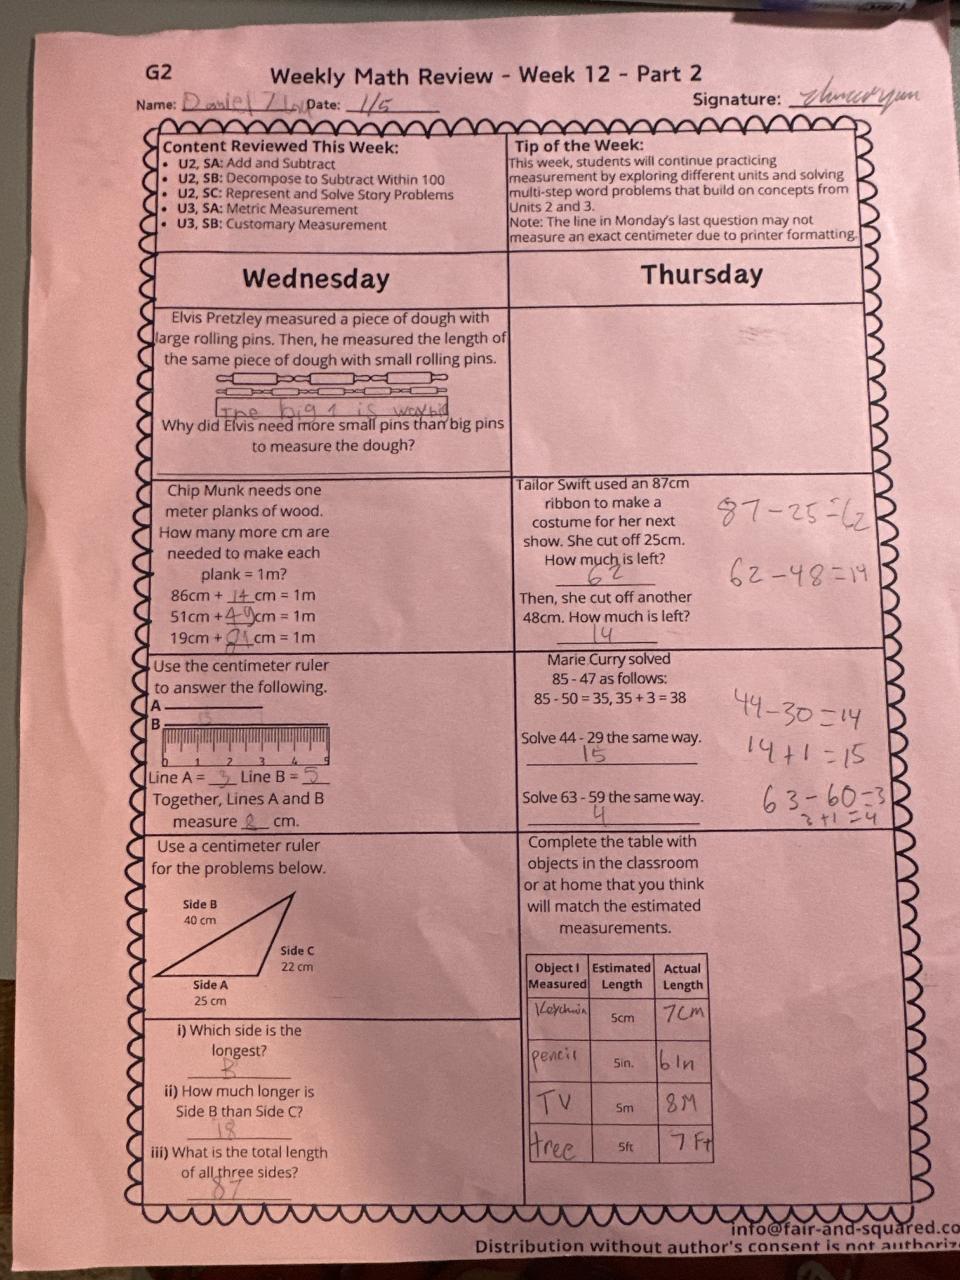 G2
Weekly Math Review - Week 12 - Part 2
Name: Daniel Date: 1/5
Signature:
Content Reviewed This Week:
• U2, SA: Add and Subtract
• U2, SB: Decompose to Subtract Within 100
• U2, SC: Represent and Solve Story Problems
• U3, SA: Metric Measurement
• U3, SB: Customary Measurement
Tip of the Week:
This week, students will continue practicing
measurement by exploring different units and solving
multi-step word problems that build on concepts from
Units 2 and 3.
Note: The line in Monday's last question may not
measure an exact centimeter due to printer formatting.
Wednesday
Elvis Pretzley measured a piece of dough with
large rolling pins. Then, he measured the length of
the same piece of dough with small rolling pins.
The big 1 is
Why did Elvis need more small pins than big pins
to measure the dough?
Chip Munk needs one
meter planks of wood.
How many more cm are
needed to make each
plank = 1m?
86cm + 14 cm = 1m
51cm + 49 cm = 1m
19cm + 81 cm = 1m
Use the centimeter ruler
to answer the following.
A
B
0 1 2 3 4 5
Line A = 3 Line B = 5
Together, Lines A and B
measure 8 cm.
Use a centimeter ruler
for the problems below.
Side B
40 cm
Side C
22 cm
Side A
25 cm
i) Which side is the
longest?
B
ii) How much longer is
Side B than Side C?
18
iii) What is the total length
of all three sides?
87
Thursday
Tailor Swift used an 87cm
ribbon to make a
costume for her next
show. She cut off 25cm.
How much is left?
62
Then, she cut off another
48cm. How much is left?
14
87-25=62
62-48=14
Marie Curry solved
85 - 47 as follows:
85 - 50 = 35, 35 + 3 = 38
Solve 44 - 29 the same way.
15
Solve 63 - 59 the same way.
4
44-30=14
14+1=15
63-60=3
3+1=4
Complete the table with
objects in the classroom
or at home that you think
will match the estimated
measurements.
Object I Estimated Actual
Measured Length Length
Keychain 5cm 7cm
pencil 5in. 6In
TV 5m 8M
tree 5ft 7Ft
info@fair-and-squared.co
Distribution without author's consent is not authoriz